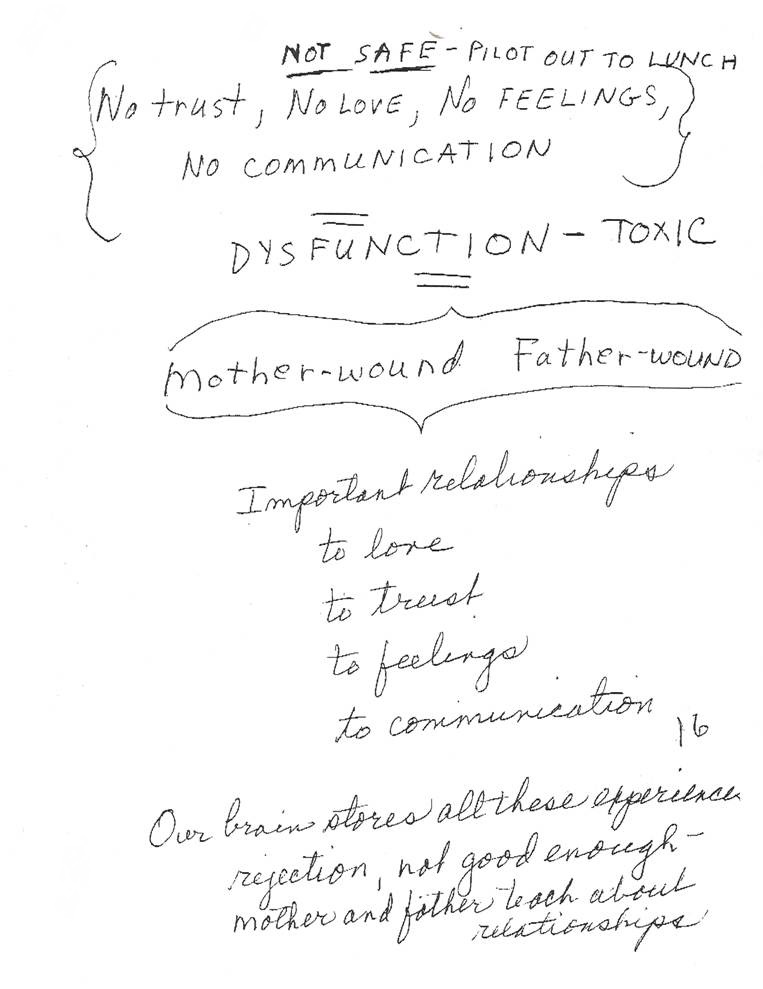 NOT SAFE - PILOT OUT TO LUNCH
No trust, No LOVE, No FEELINGS,
No COMMUNICATION
DYSFUNCTION - TOXIC
Mother-wound Father-WOUND
Important relationships
to love
to trust
to feelings
to communication
16
Our brain stores all these experience
rejection, not good enough -
mother and father teach about
relationships